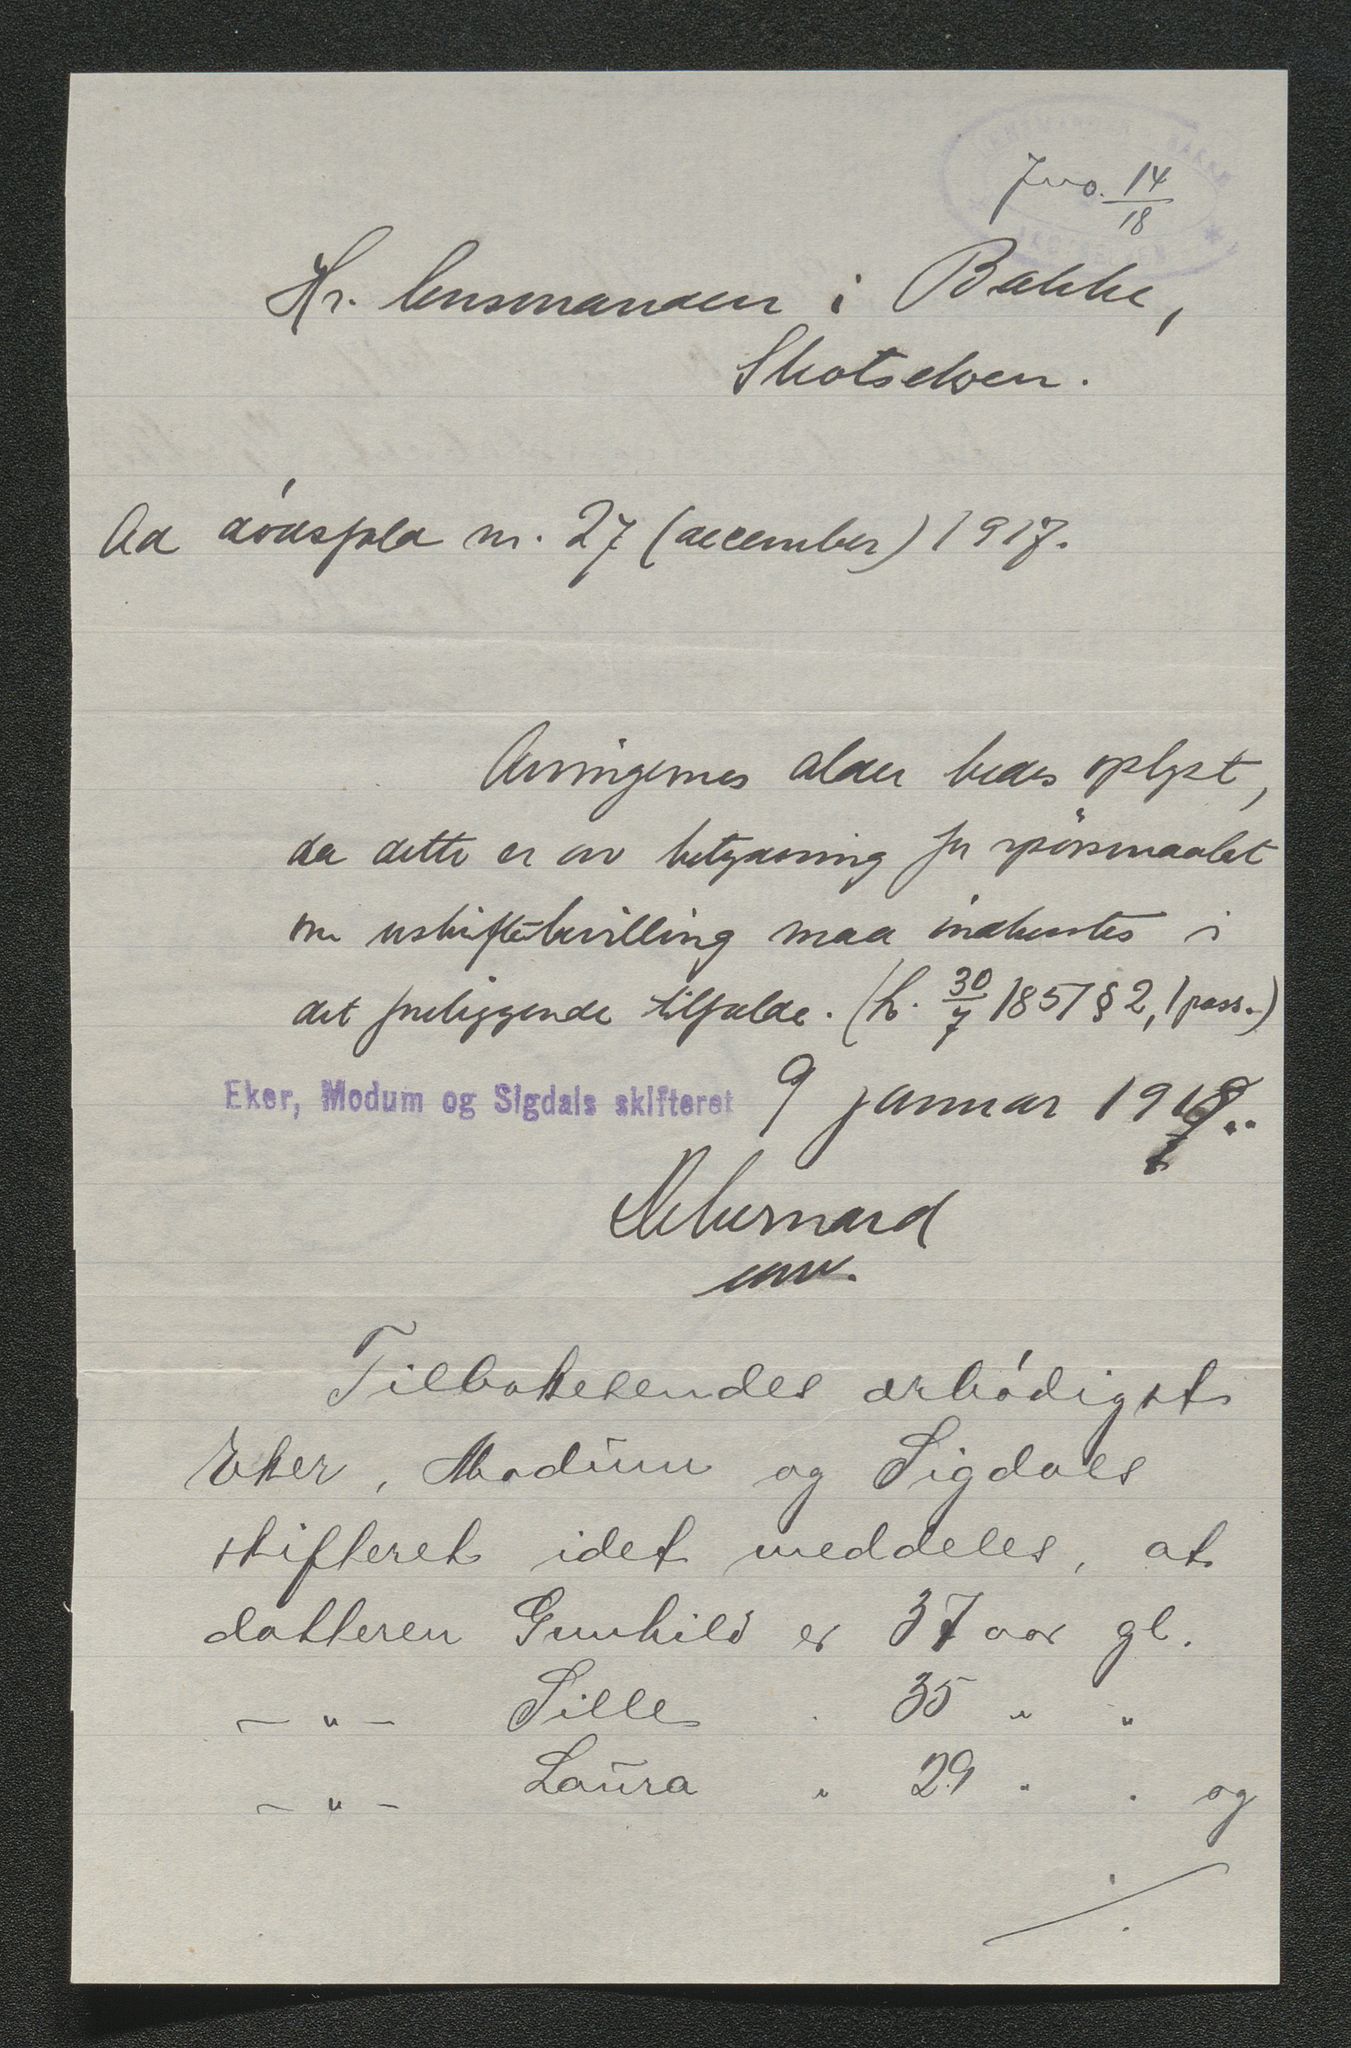 Jno. 14/18
Hr. lensmanden i Bakke,
Skotselven.
Ad dódsfald nr. 27 (december) 1917.
Arvingernes alder bedes oplyst,
da dette er av betydning for spörsmaalet
om uskiftebevilling maa indhentes i
det foreliggende tilfælde. (L. 30/7 1851 § 2, 1 pass.)
Eker, Modum og Sigdals skifteret 9 januar 1918.
const.
Tilbakesendes ærbódigst
Eker, Modum og Sigdals
skifteret idet meddeles, at
datteren Gunhild er 37 aar gl.
— " — Sille . 35 " "
— " — Laura " 29 . . og
./.